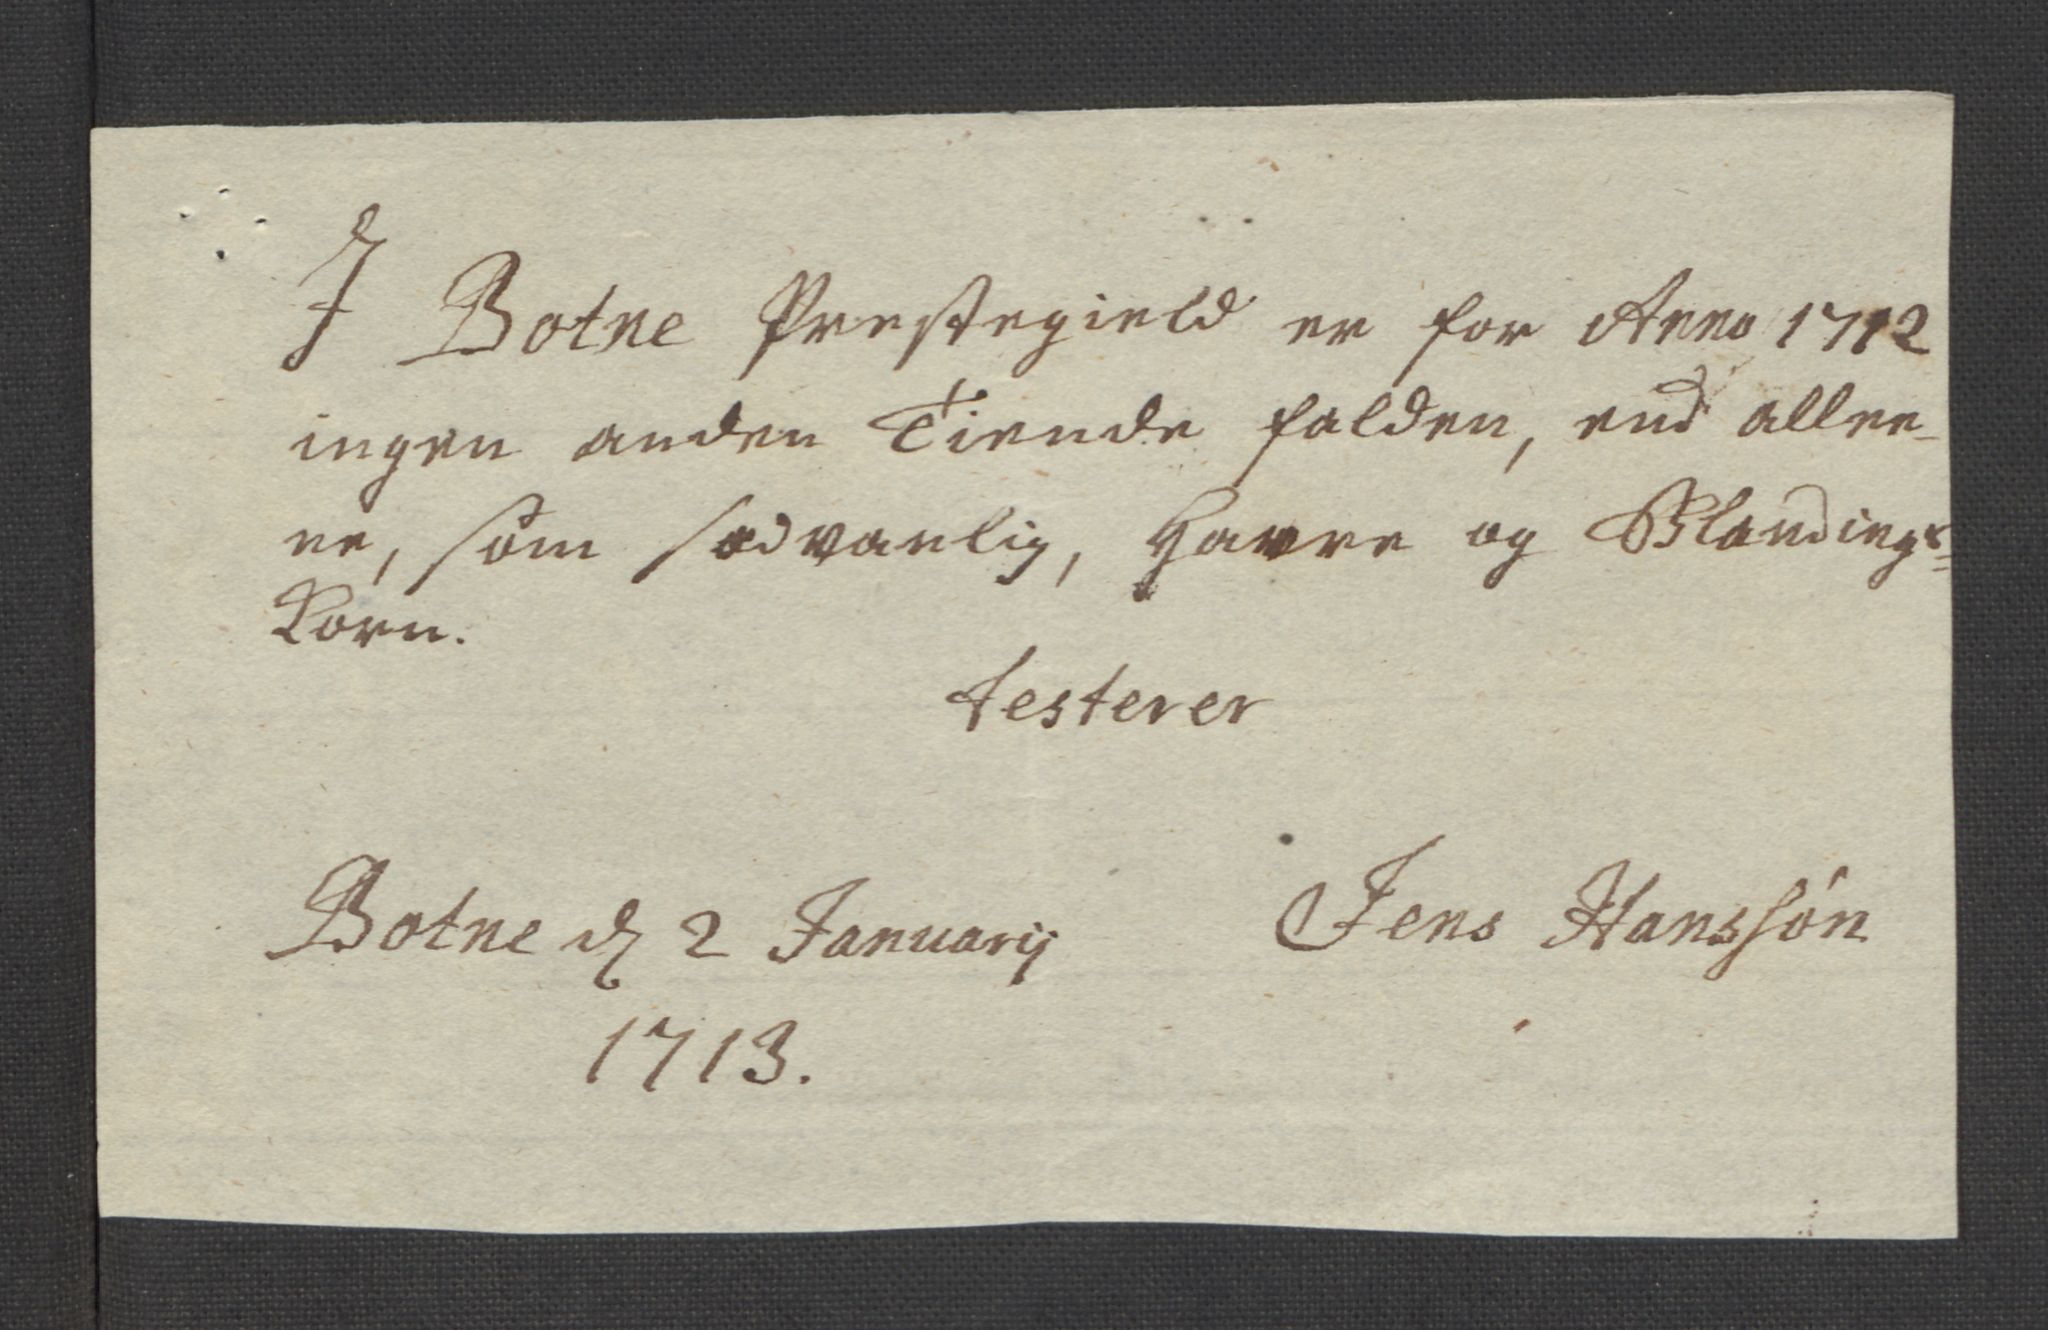 I Botne Prestegield er for Anno 1712
ingen anden Tiende falden, end allee-
ne, som sædvanlig, Havre og Blandings-
Korn.
testerer
Botne d 2 Januarij
Jens Hanssøn
1713.